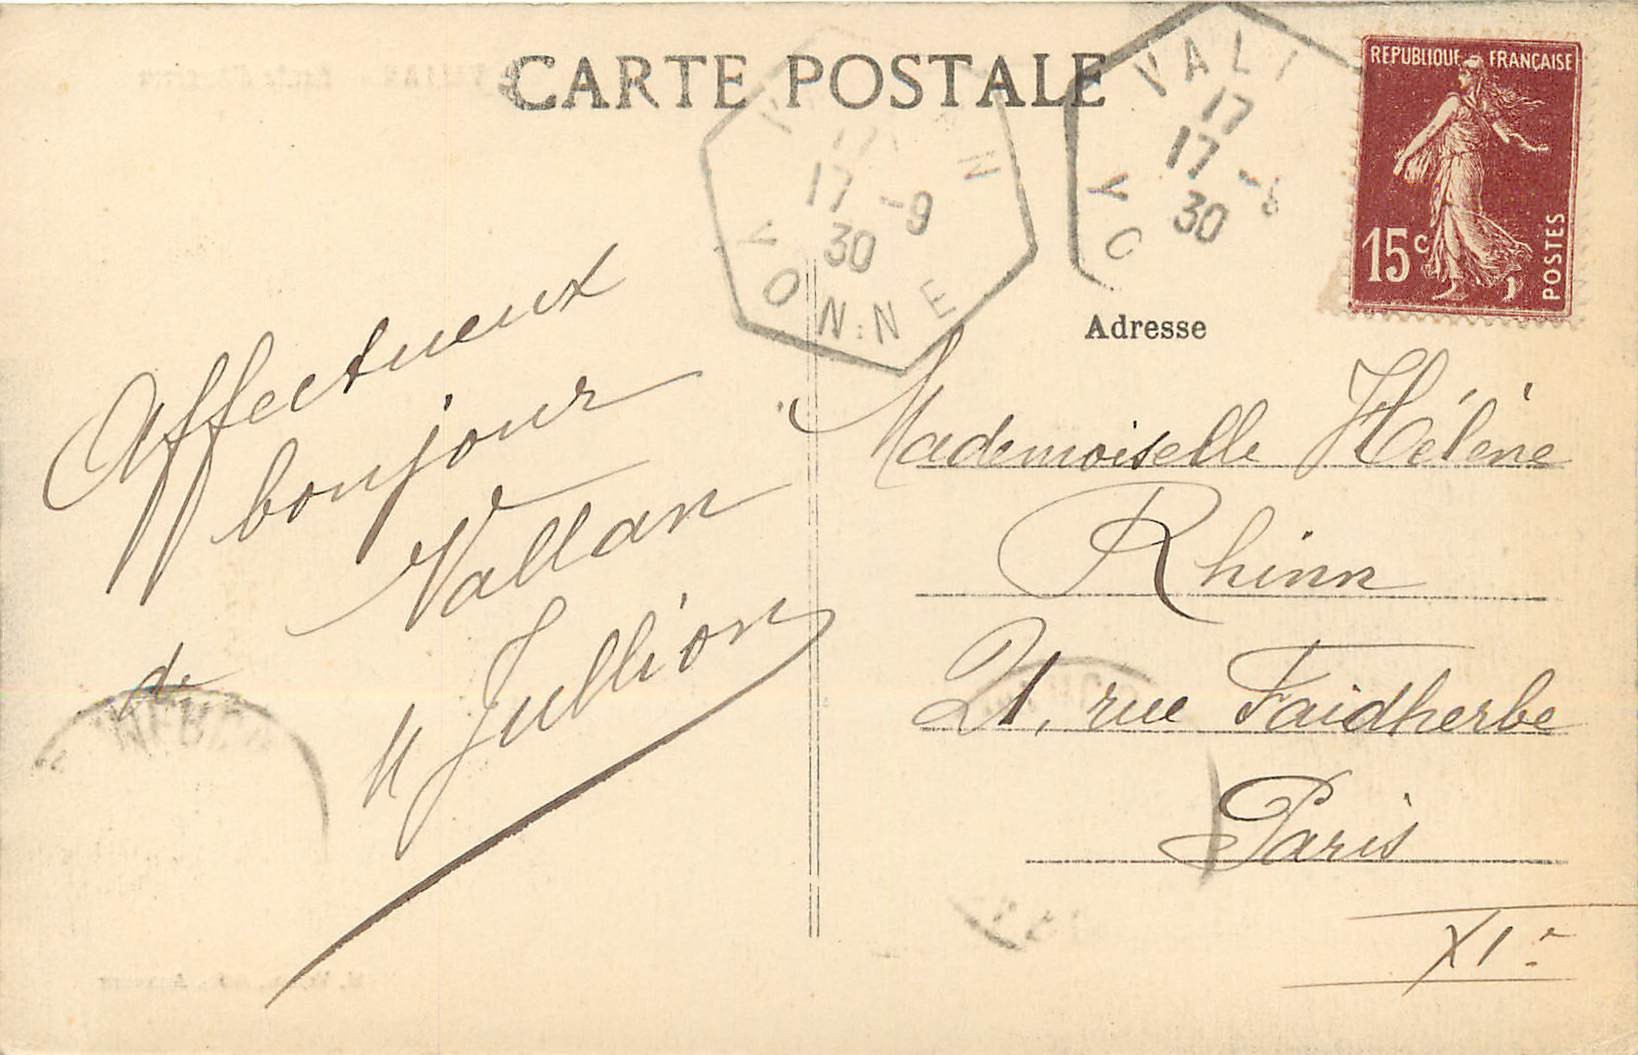 CARTE POSTALE
VALL
17
17 -9
30
YONNE
VALL
17
17 -
30
YO
REPUBLIQUE FRANÇAISE
15c
POSTES
Affectueux
bonjour
Vallan
de
M Jullion
Adresse
Mademoiselle Hélène
Rhinn
21, rue Faidherbe
Paris
XIe